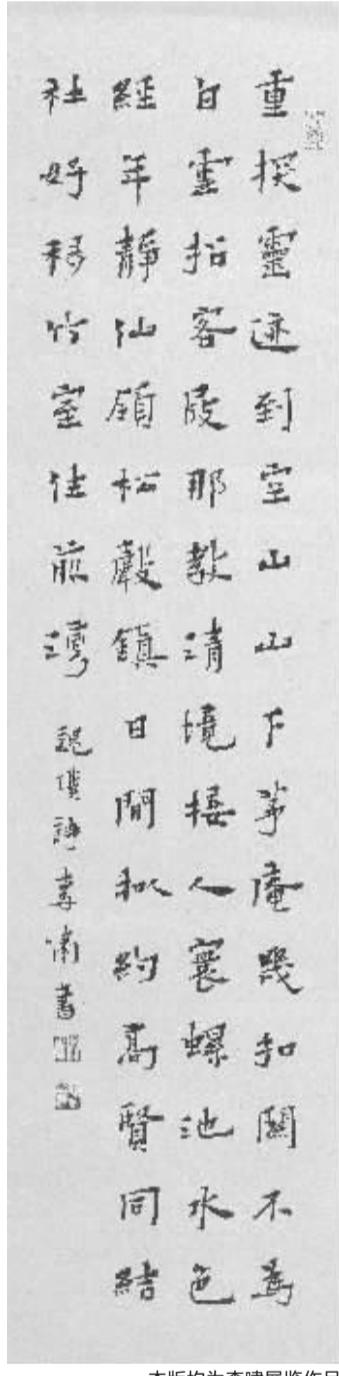 重探靈迹到空山山下茅庵幾扣關不為
白雲招客屐那教清境接人寰螺池水色
經年靜仙嶺松聲鎮日閒拟約高賢同結
社好移竹室住前灣
魏僕詩李嘯書
本版均为李啸展览作品